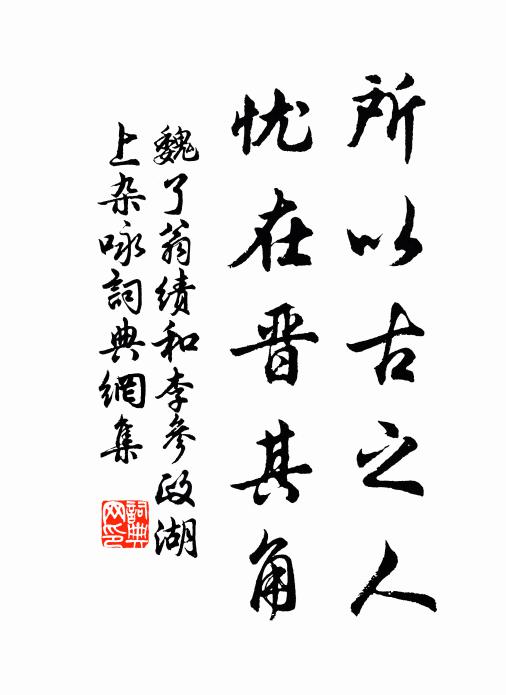 所以古之人
忧在晋其角
魏了翁绩和李参政湖
上杂咏词典網集
詞典网印